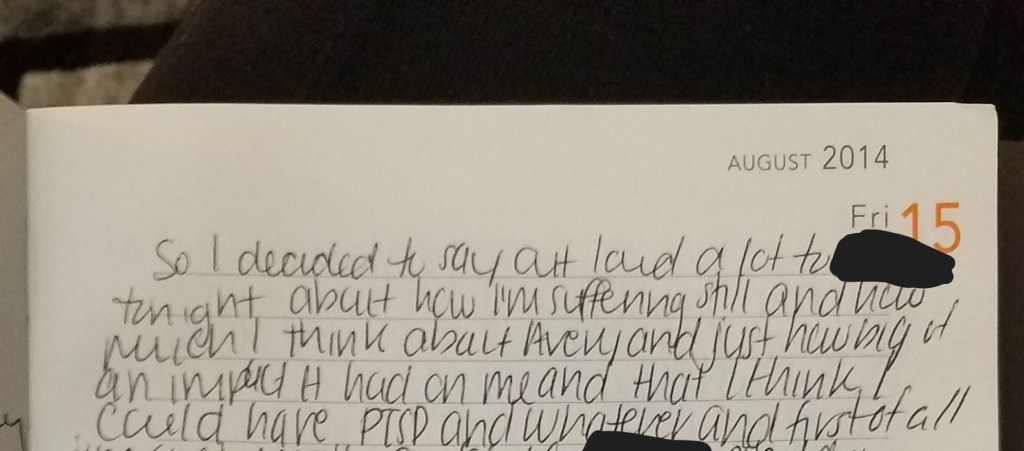 AUGUST 2014
Fri 15
So I decided to say out loud a lot to
tonight about how I'm suffering still and how
much I think about Avery and just how big of
an impact it had on me and that I think I
could have PTSD and whatever and first of all